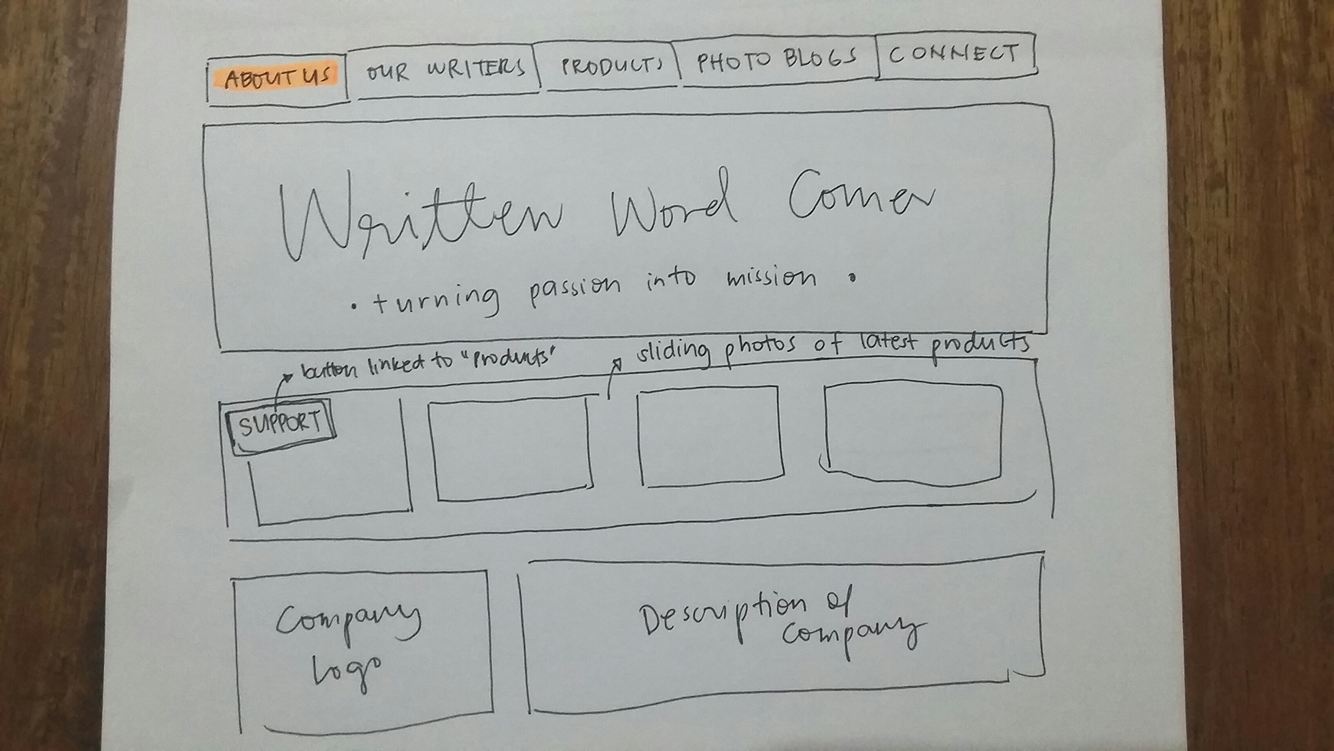 ABOUT US OUR WRITERS PRODUCTS PHOTO BLOGS CONNECT
Written Word Corner
• turning passion into mission •
button linked to "products"
sliding photos of latest products
SUPPORT
Company
Logo
Description of
Company